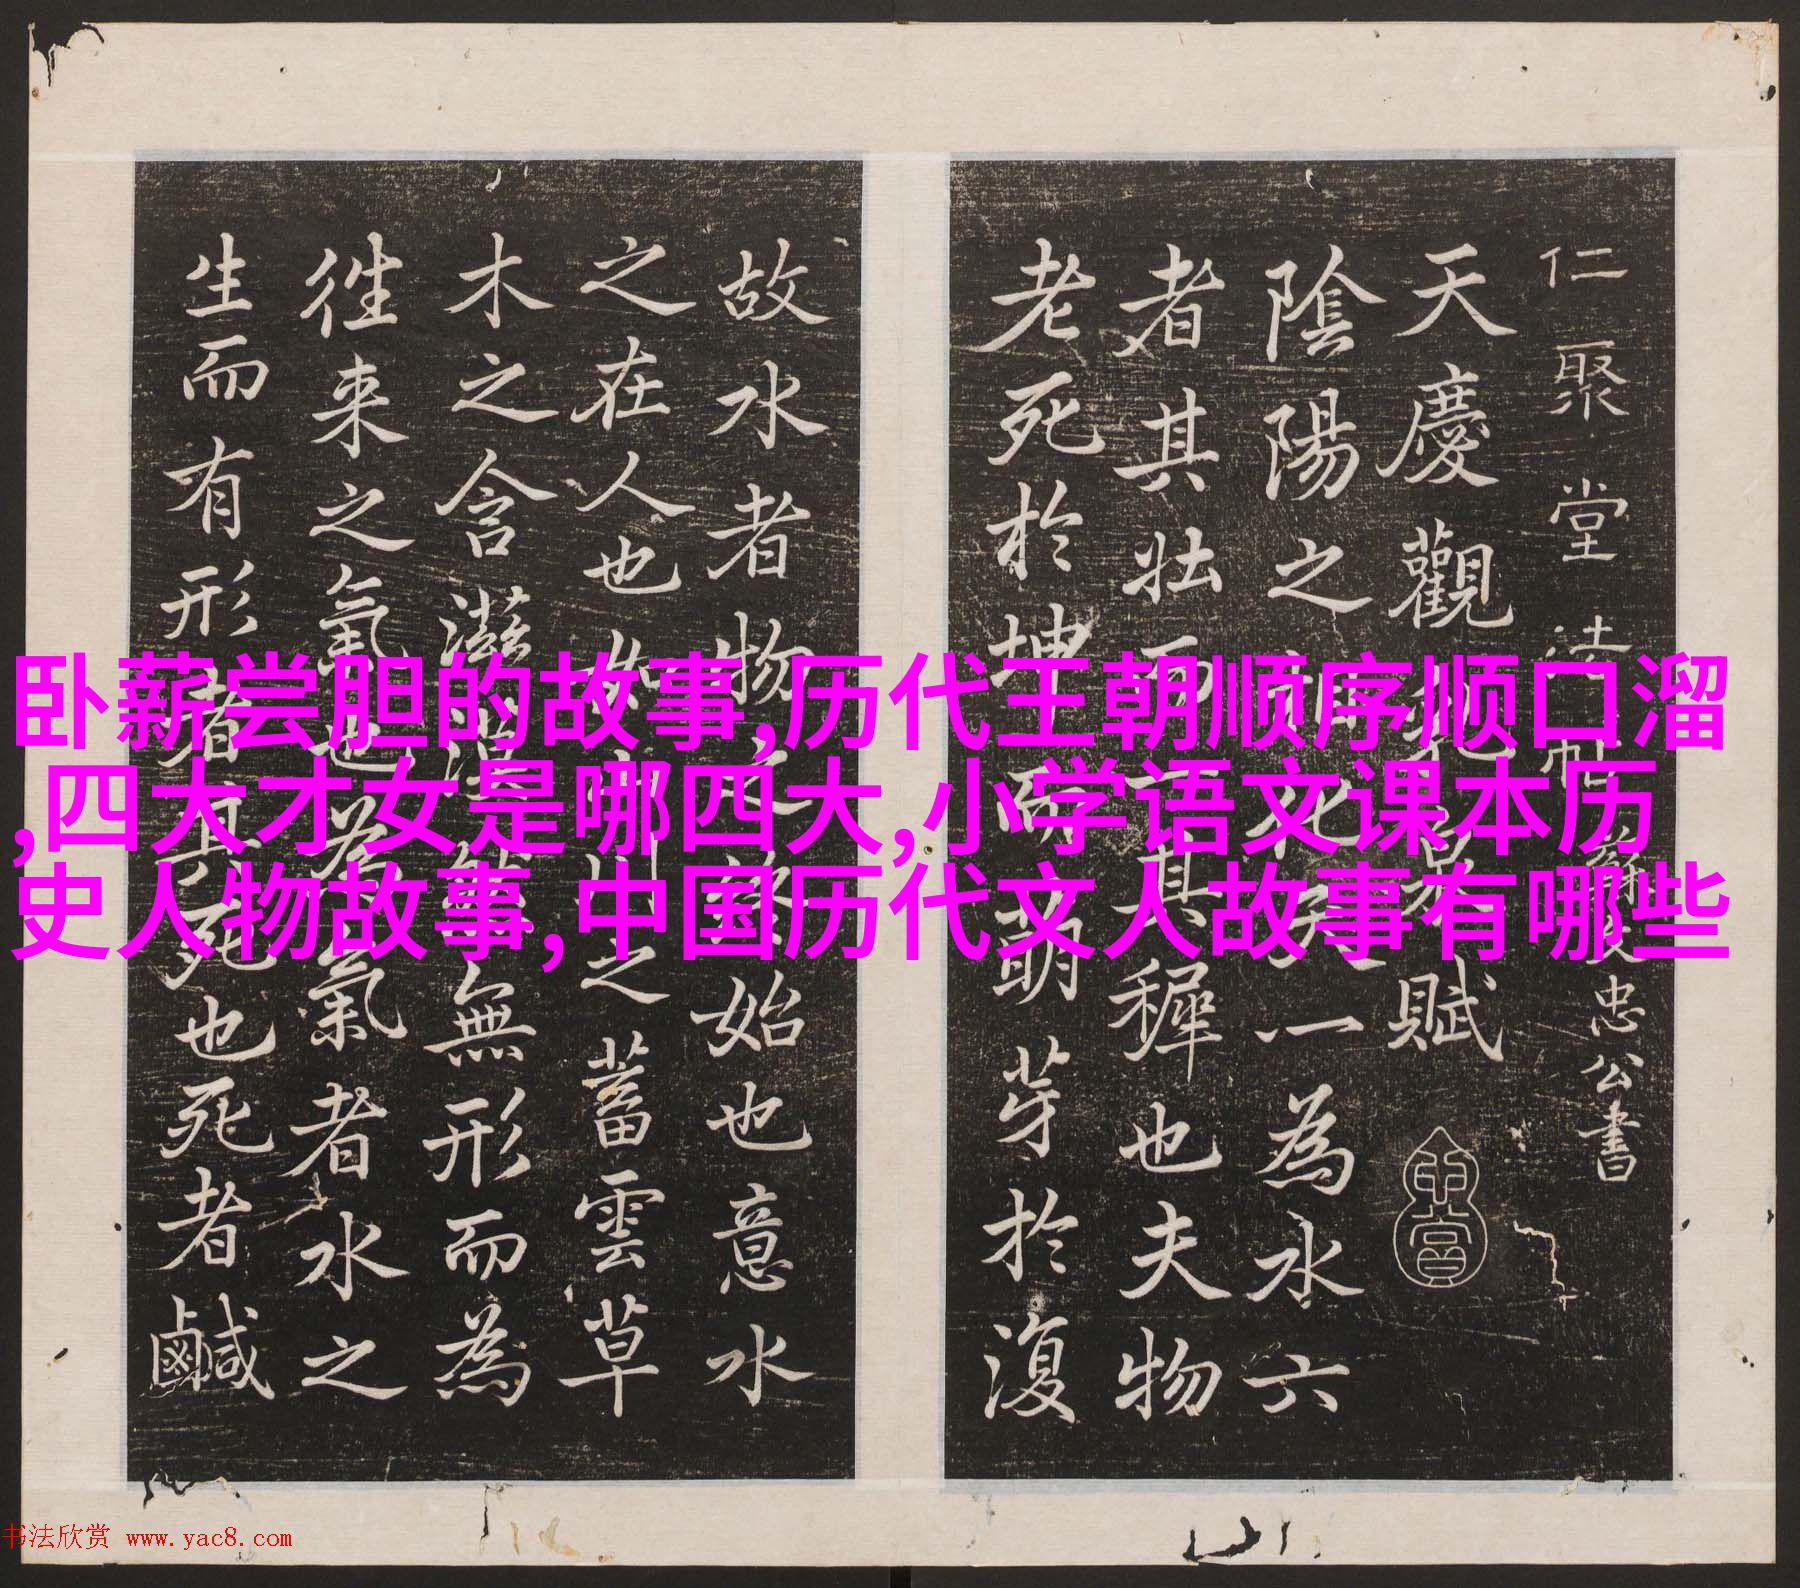 卧薪尝胆的故事,历代王朝顺序顺口溜
,四大才女是哪四大,小学语文课本历
史人物故事,中国历代文人故事有哪些
仁聚堂法帖 蘇文忠公書
天慶觀乳泉賦
陰陽之相化天一為水六
者其壯而一者其穉也夫物
老死於坤而萌芽於復
故水者物之終始也意水
之在人也如山川之蓄雲草
木之含滋漠然無形而為
徃来之氣也為氣者水之
生而有形者其死也死者鹹
书法欣赏 www.yac8.com